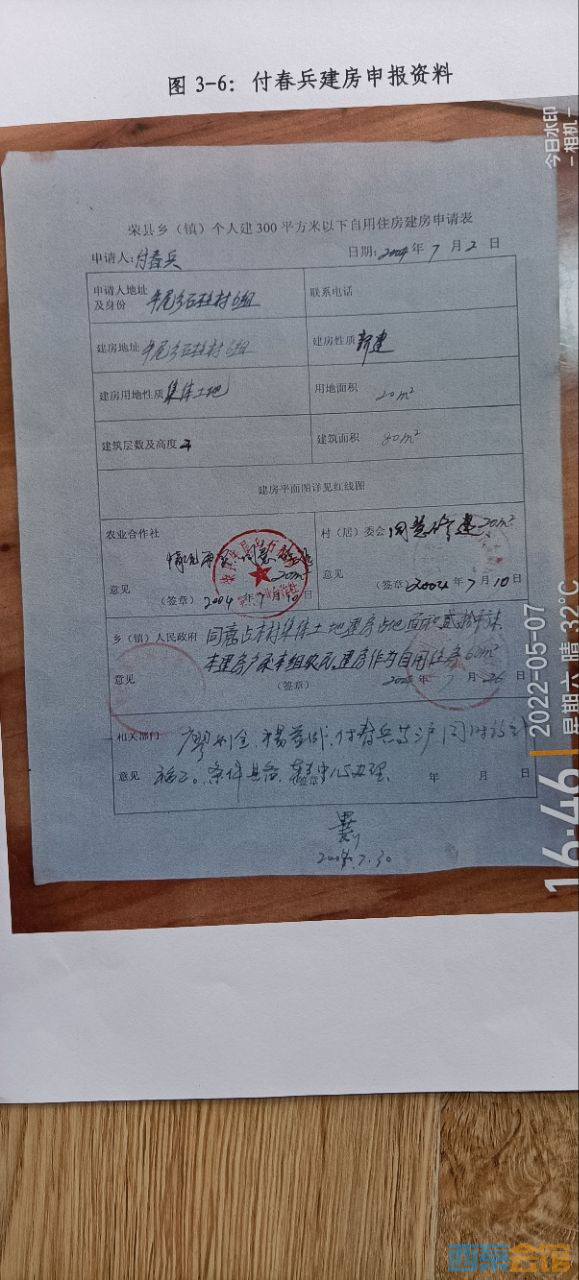 图 3-6: 付春兵建房申报资料
荣县乡（镇）个人建300平方米以下自用住房建房申请表
申请人:付春兵 日期:2004年7月2日
申请人地址及身份 牟尾乡石柱村6组 联系电话
建房地址 牟尾乡石柱村6组 建房性质 新建
建房用地性质 集体土地 用地面积 20m²
建筑层数及高度 建筑面积 80m²
建房平面图详见红线图
农业合作社 村（居）委会 同意修建20m²
情况 同意 20m²
意见 意见
（签章）2004年7月10日 （签章）2004年7月10日
乡（镇）人民政府 同意占本村集体土地建房占地面积贰拾平米
本组农民,建房作为自用住房60m²
意见 （签章） 7月26日
相关部门 付春兵等
意见 条件具备 办理 年 月 日
2004.7.30
今日水印
-相机-
16:46
2022-05-07
星期六 晴 32°C
西秦会馆